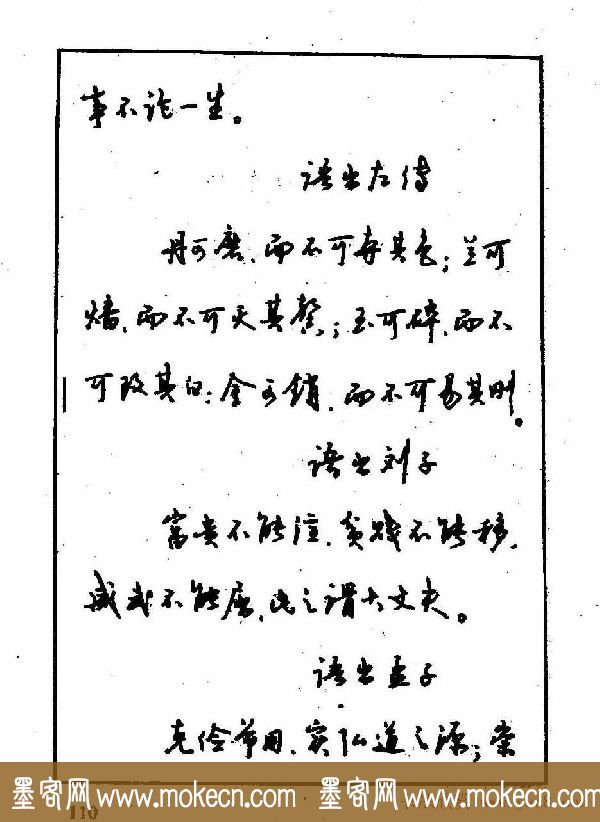 事不论一生。
语出左传
丹可磨，而不可夺其色；兰可
燔，而不可灭其馨；玉可碎，而不
可改其白；金可销，而不可易其刚。
语出刘子
富贵不能淫，贫贱不能移，
威武不能屈，此之谓大丈夫。
语出孟子
克俭节用，实弘道之源；崇
墨客网 www.mokecn.com 墨客网 www.mokecn.com
110